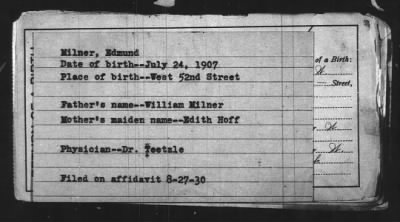 Milner, Edmund
Date of birth--July 24, 1907
Place of birth--West 52nd Street
Father's name--William Milner
Mother's maiden name--Edith Hoff
Physician--Dr. Teetzle
Filed on affidavit 8-27-30
of a Birth:
W.
Street,
W.
W.